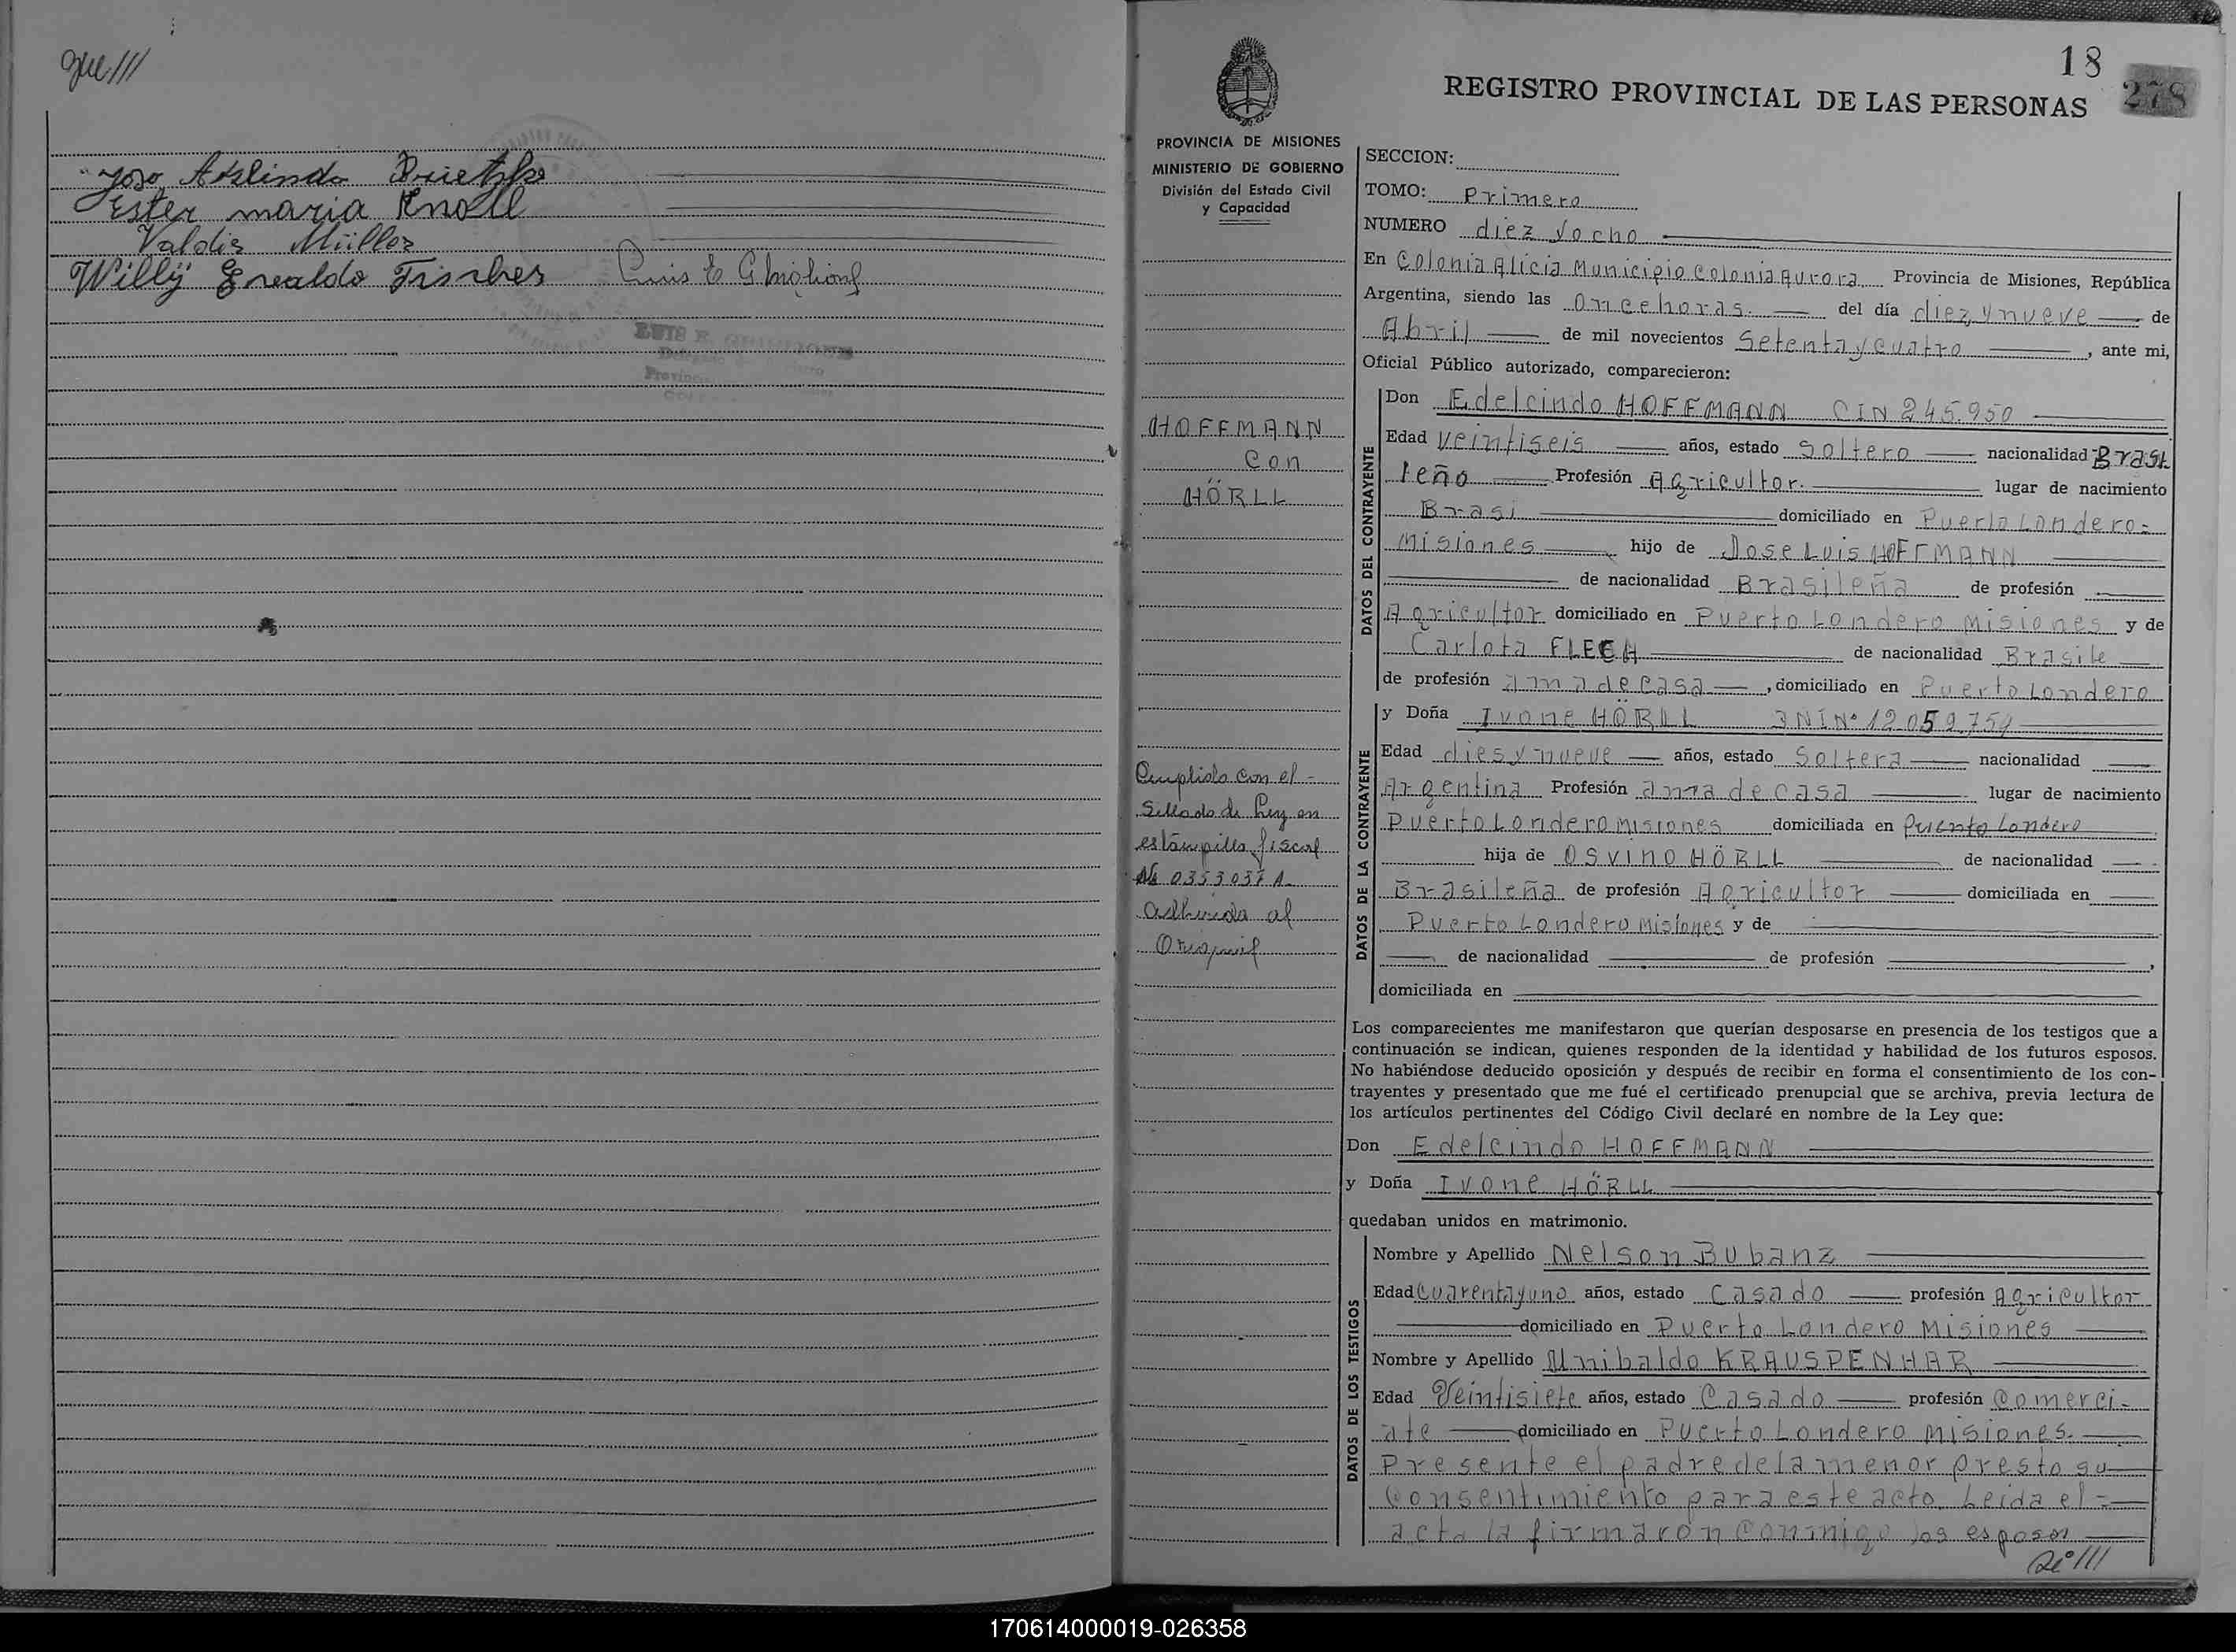 que///
Joso Arlindo Prietzke
Ester maria Knoll
Valdir Müller
Willÿ Erealdo Fischer Luis E Ghiglione
LUIS E. GHIGLIONE
18
278
REGISTRO PROVINCIAL DE LAS PERSONAS
PROVINCIA DE MISIONES
MINISTERIO DE GOBIERNO
División del Estado Civil
y Capacidad
HOFFMANN
con
HÖRLL
Cumplido con el -
Sellado de Ley en
estampilla fiscal
No 0353037 A-
adherida al
Original
SECCION:
TOMO: primero
NUMERO diez y ocho
En Colonia Alicia Municipio Colonia Aurora Provincia de Misiones, República
Argentina, siendo las Once horas. del día diez y nueve de
Abril de mil novecientos Setenta y cuatro , ante mi,
Oficial Público autorizado, comparecieron:
DATOS DEL CONTRAYENTE
Don Edelcindo HOFFMANN CIN 245.950
Edad veintiseis años, estado Soltero nacionalidad Brasi
leño Profesión Agricultor. lugar de nacimiento
Brasi domiciliado en Puerto Londero-
Misiones hijo de Jose Luis HOFFMANN
de nacionalidad Brasileña de profesión
Agricultor domiciliado en Puerto Londero Misiones y de
Carlota FLECH de nacionalidad Brasile
de profesión ama de casa , domiciliado en Puerto Londero
DATOS DE LA CONTRAYENTE
y Doña Ivone HÖRLL INI Nº 12.059.759
Edad dies y nueve años, estado Soltera nacionalidad
Argentina Profesión ama de casa lugar de nacimiento
Puerto Londero Misiones domiciliada en Puerto Londero
hija de OSVINO HÖRLL de nacionalidad
Brasileña de profesión Agricultor domiciliada en
Puerto Londero Misiones y de
de nacionalidad de profesión ,
domiciliada en
Los comparecientes me manifestaron que querían desposarse en presencia de los testigos que a
continuación se indican, quienes responden de la identidad y habilidad de los futuros esposos.
No habiéndose deducido oposición y después de recibir en forma el consentimiento de los con-
trayentes y presentado que me fué el certificado prenupcial que se archiva, previa lectura de
los artículos pertinentes del Código Civil declaré en nombre de la Ley que:
Don Edelcindo HOFFMANN
y Doña Ivone HÖRLL
quedaban unidos en matrimonio.
DATOS DE LOS TESTIGOS
Nombre y Apellido Nelson Bubanz
Edad Cuarenta y uno años, estado Casado profesión Agricultor
domiciliado en Puerto Londero Misiones
Nombre y Apellido Unibaldo KRAUSPENHAR
Edad Veintisiete años, estado Casado profesión Comerci-
ate domiciliado en Puerto Londero Misiones.
Presente el padre de la menor presto su
Consentimiento para este acto. Leida el =
acta la firmaron conmigo los esposos
170614000019-026358